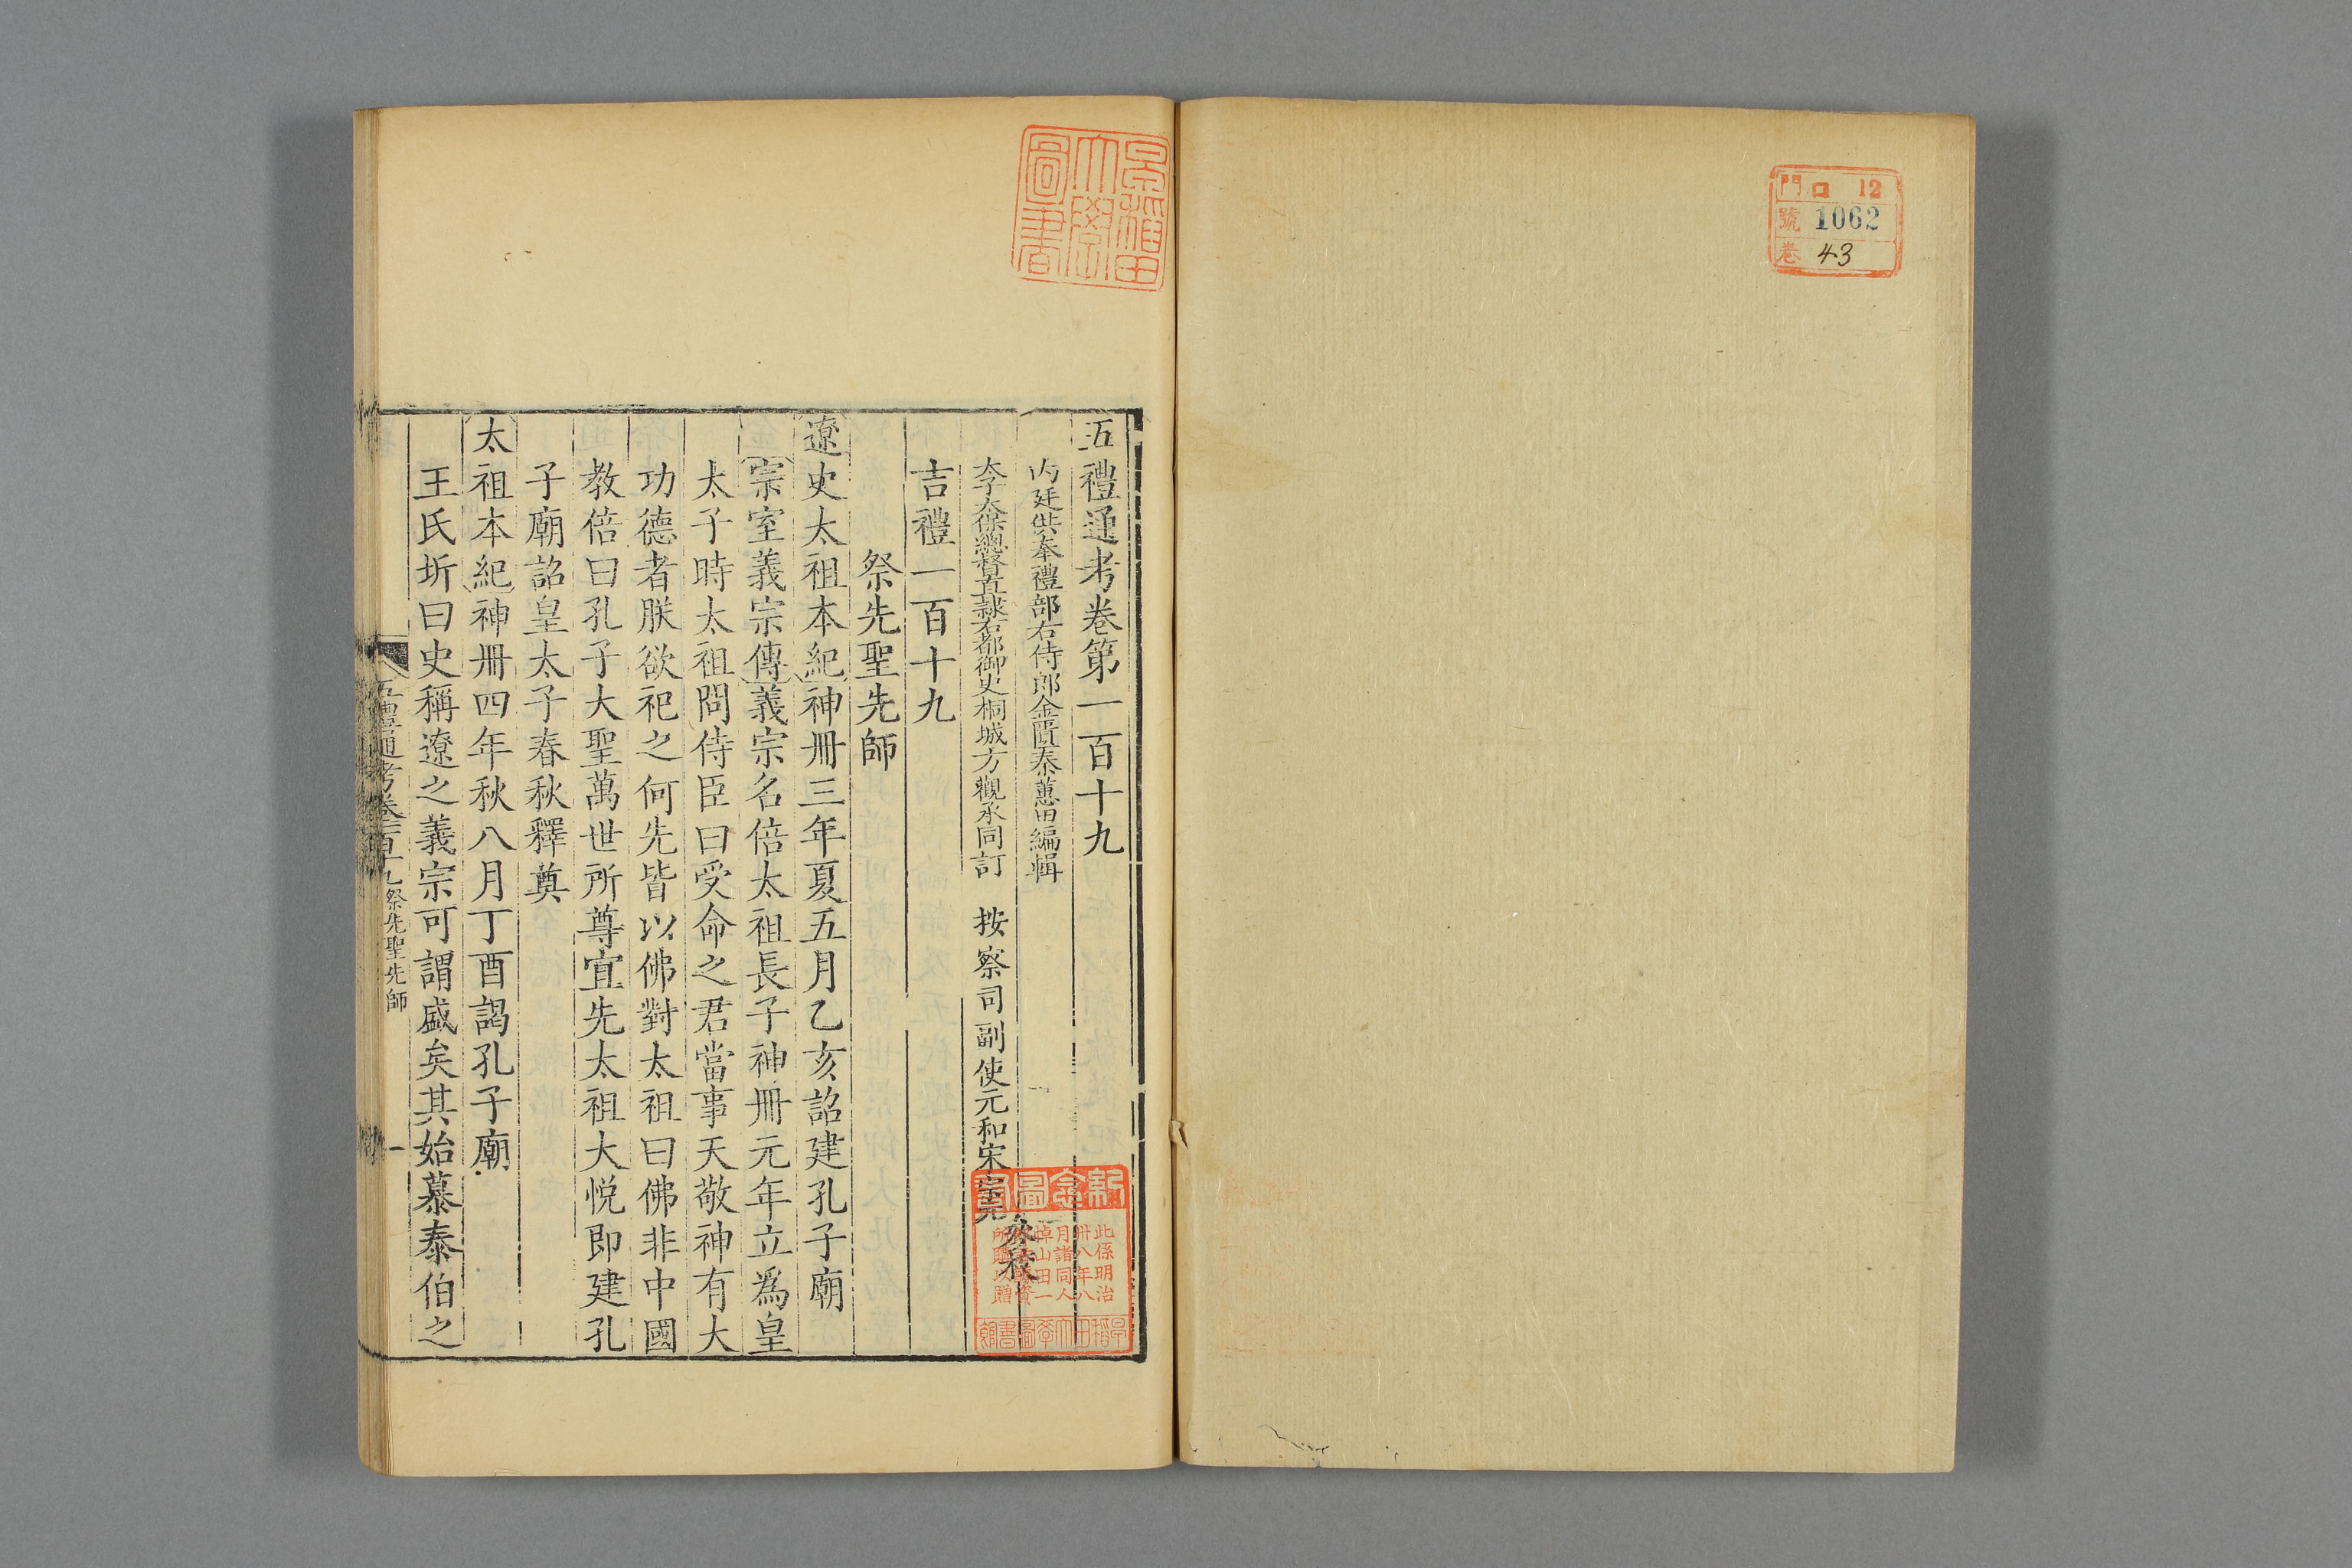 門 口 12
號 1062
卷 43
早稲田
大學
圖書
五禮通考卷第一百十九
內廷供奉禮部右侍郎金匱秦蕙田編輯
太子太保總督直隸右都御史桐城方觀承同訂 按察司副使元和宋宗元參校
吉禮一百十九
祭先聖先師
遼史太祖本紀神冊三年夏五月乙亥詔建孔子廟
宗室義宗傳義宗名倍太祖長子神冊元年立為皇
太子時太祖問侍臣曰受命之君當事天敬神有大
功德者朕欲祀之何先皆以佛對太祖曰佛非中國
教倍曰孔子大聖萬世所尊宜先太祖大悅即建孔
子廟詔皇太子春秋釋奠
太祖本紀神冊四年秋八月丁酉謁孔子廟
王氏圻曰史稱遼之義宗可謂盛矣其始慕泰伯之
五禮通考卷一百十九祭先聖先師 一
紀念圖書
此係明治
卅八年八
月諸同人
悼山田一
所購以贈
早稻田大學圖書館